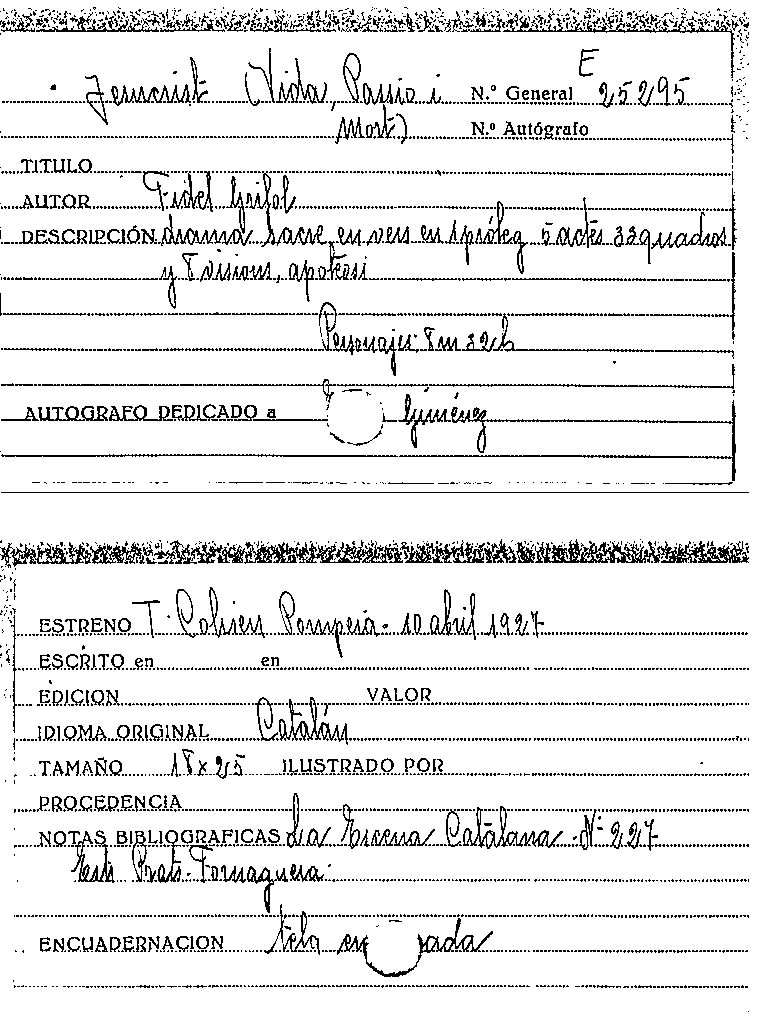 E
Jesucrist (Vida, Passio i N.º General 25295
Mort) N.º Autógrafo
TITULO
AUTOR Fidel Grifol
DESCRIPCIÓN drama sacre, en vers en 1 próleg 5 actes 33 quadros
y 8 visions, apoteosi
Personajes: 8m 32h
AUTOGRAFO DEDICADO a Giménez
ESTRENO T. Coliseu Pompeia - 10 abril 1927
ESCRITO en en
EDICION VALOR
IDIOMA ORIGINAL Catalán
TAMAÑO 18 x 25 ILUSTRADO POR
PROCEDENCIA
NOTAS BIBLIOGRAFICAS La Escena Catalana - Nº 227
Prats. Fornaguera.
ENCUADERNACION tela